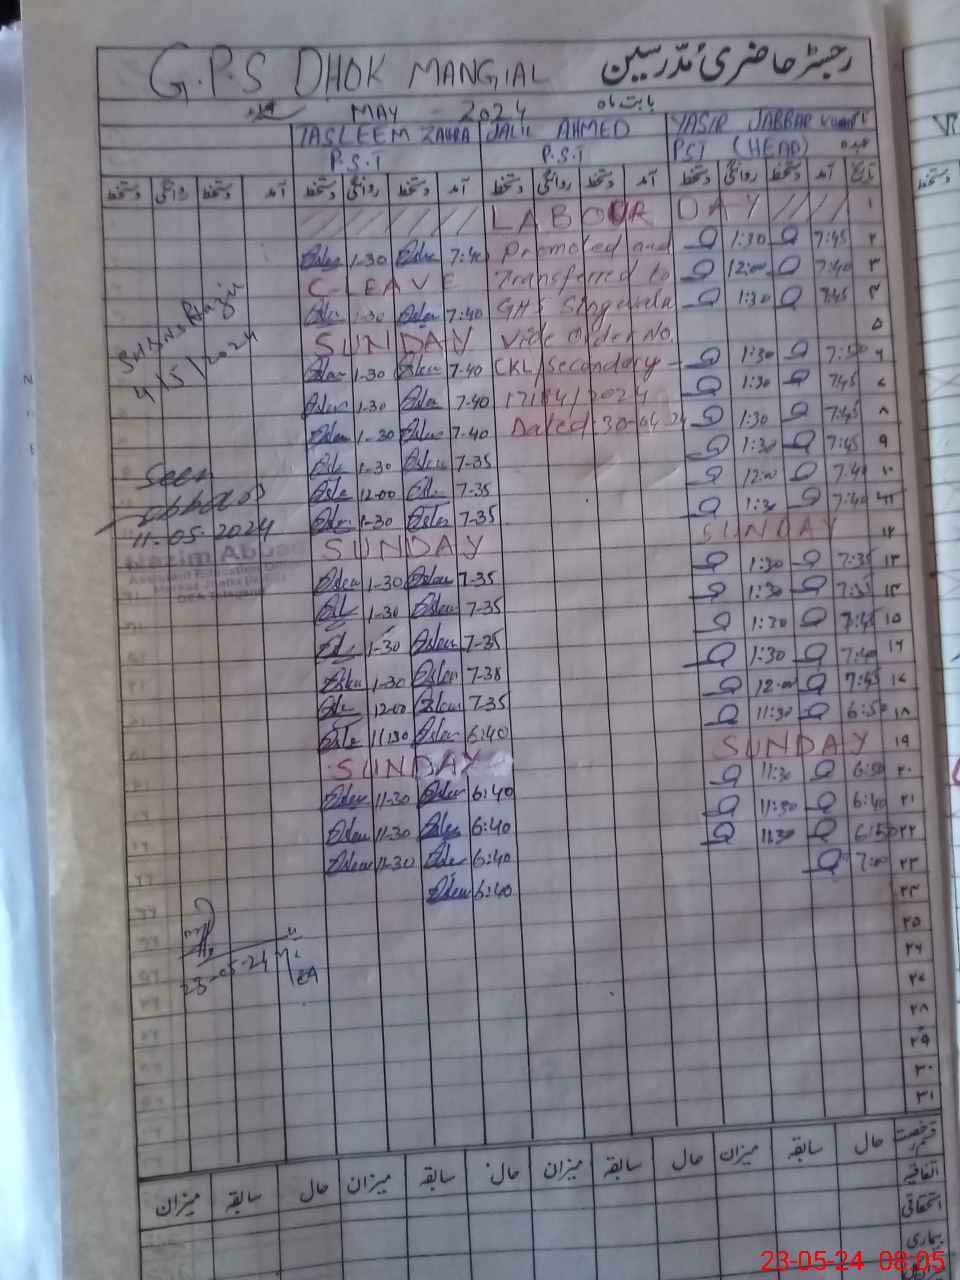 G.P.S DHOK MANGIAL رجسٹر حاضری مدرسین
MAY - 2024 بابت ماہ
TASLEEM ZAHRA JALIL AHMED YASIR JABBAR
P.S.T P.S.T PST (HEAD) عہدہ
دستخط روانگی دستخط آمد دستخط روانگی دستخط آمد دستخط روانگی دستخط آمد دستخط روانگی دستخط آمد تاریخ
LABOUR DAY ١
1-30 7:40 Promoted and 1:30 7:45 ٢
C-LEAVE Transferred to 12:00 7:40 ٣
1-30 7:40 GHS 1:30 7:45 ٤
SUNDAY Vide Order No. ٥
1-30 7-40 CKL/Secondary - 1:30 7:50 ٦
1-30 7-40 1:30 7:45 ٧
1-30 7-40 Dated 30-04-24 1:30 7:45 ٨
1-30 7-35 1:30 7:45 ٩
12-00 7-35 12:00 7:40 ١٠
1-30 7-35 1:30 7:40 ١١
SUNDAY SUNDAY ١٢
1-30 7-35 1:30 7:35 ١٣
1-30 7-35 1:30 7:35 ١٤
1-30 7-35 1:30 7:45 ١٥
1-30 7-38 1:30 7:40 ١٦
12-00 7-35 12:00 7:45 ١٧
11:30 6:40 11:30 6:50 ١٨
SUNDAY SUNDAY ١٩
11-30 6:40 11:30 6:50 ٢٠
11-30 6:40 11:30 6:40 ٢١
11-30 6:40 11:30 6:50 ٢٢
6:40 7:00 ٢٣
٢٤
٢٥
٢٦
٢٧
٢٨
٢٩
٣٠
٣١
4/5/2024
Seen
11-05-2024
23-05-24
میزان سابقہ حال میزان سابقہ حال میزان سابقہ حال میزان سابقہ حال
اتفاقیہ
استحقاقی
بیماری
23-05-24 08:05